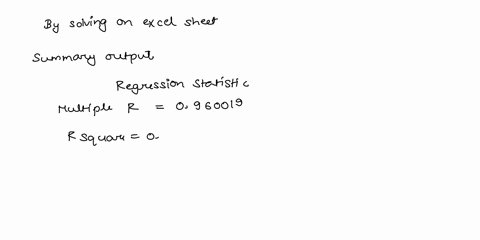 By solving on excel sheet
Summary output
Regression Statistic
Multiple R = 0.960019
R square = 0.